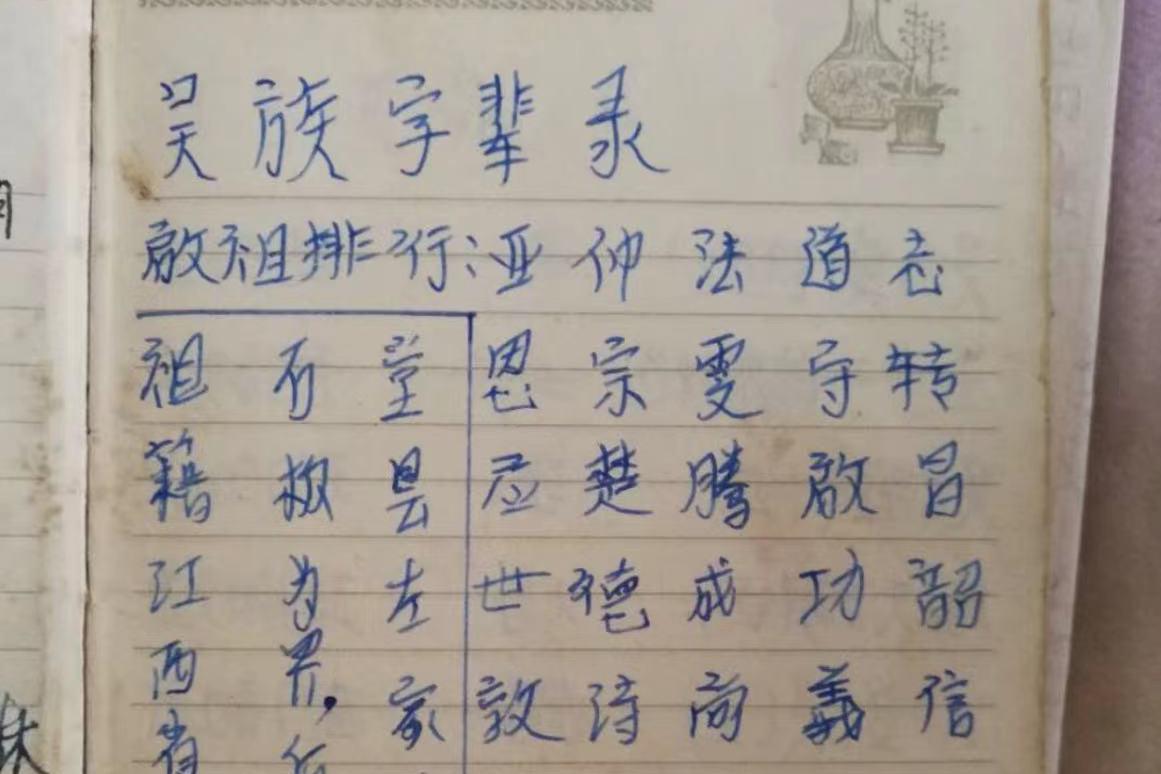 吴族字辈录
启祖排行:亚仲法道志
恩宗雯守转
应楚腾启昌
世德成功韶
敦诗尚義信
祖籍江西省
有 为界,
堂昙左家